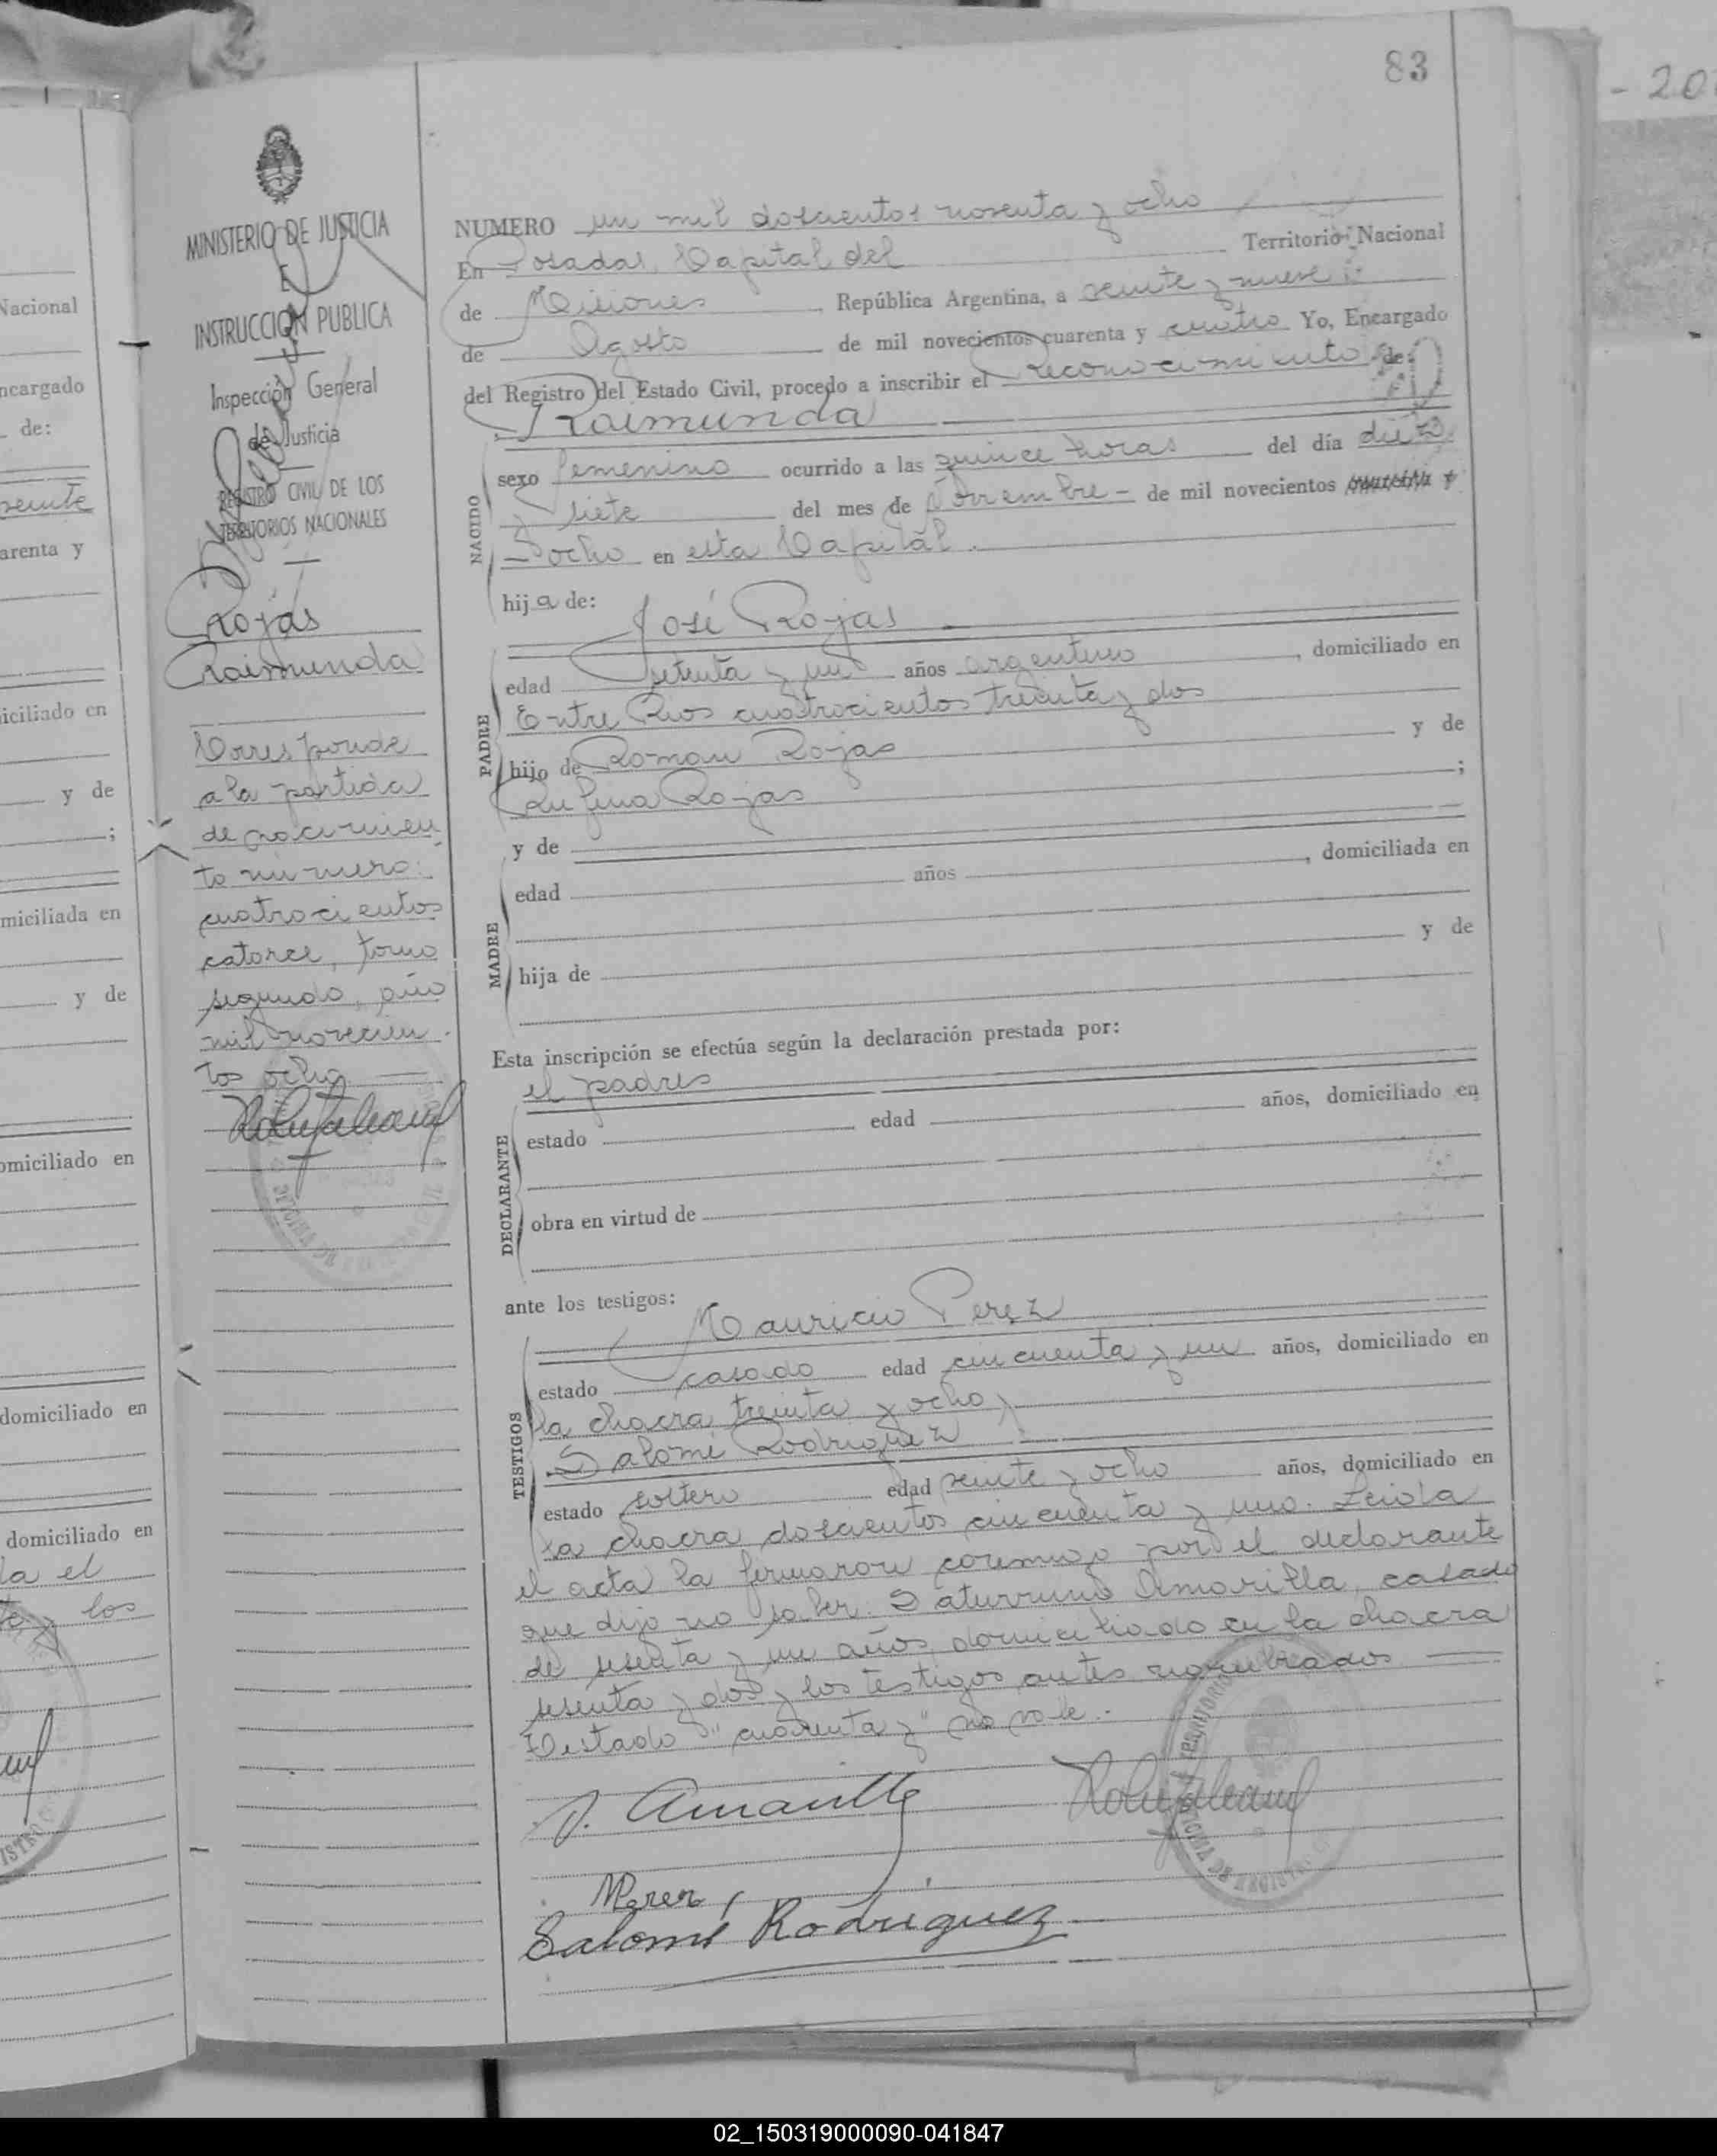 83
- 20
MINISTERIO DE JUSTICIA
E
INSTRUCCION PUBLICA
Inspección General
de Justicia
REGISTRO CIVIL DE LOS
TERRITORIOS NACIONALES
Rojas
Raimunda
Corresponde
a la partida
de nacimien
to número:
cuatrocientos
catorce, tomo
segundo, año
mil novecien
tos ocho
NUMERO un mil doscientos noventa y ocho
En Posadas, Capital del Territorio Nacional
de Misiones, República Argentina, a veinte y nueve
de Agosto de mil novecientos cuarenta y cuatro Yo, Encargado
del Registro del Estado Civil, procedo a inscribir el reconocimiento de:
Raimunda
NACIDO
sexo femenino ocurrido a las quince horas del día diez
y siete del mes de Noviembre - de mil novecientos cuarenta y
- ocho en esta Capital.
hija de: José Rojas
PADRE
edad setenta y un años argentino, domiciliado en
Entre Rios cuatrocientos treinta y dos
hijo de Roman Rojas y de
Rufina Rojas ;
MADRE
y de
edad años , domiciliada en
hija de y de
Esta inscripción se efectúa según la declaración prestada por:
el padre
DECLARANTE
estado edad años, domiciliado en
obra en virtud de
ante los testigos: Mauricio Perez
TESTIGOS
estado casado edad cincuenta y un años, domiciliado en
la chacra treinta y ocho y
Salomé Rodriguez
estado soltero edad veinte y ocho años, domiciliado en
la chacra doscientos cincuenta y uno. Leida
el acta la firmaron conmigo por el declarante
que dijo no saber: Saturnino Amarilla, casado
de sesenta y un años, domiciliado en la chacra
sesenta y dos y los testigos antes nombrados
Testado "cuarenta y" no vale.
S. Amarilla
MPerez
Salomé Rodriguez
Nacional
ncargado
de:
veinte
arenta y
iciliado en
y de
;
miciliada en
y de
omiciliado en
domiciliado en
domiciliado en
da el
los
02_150319000090-041847